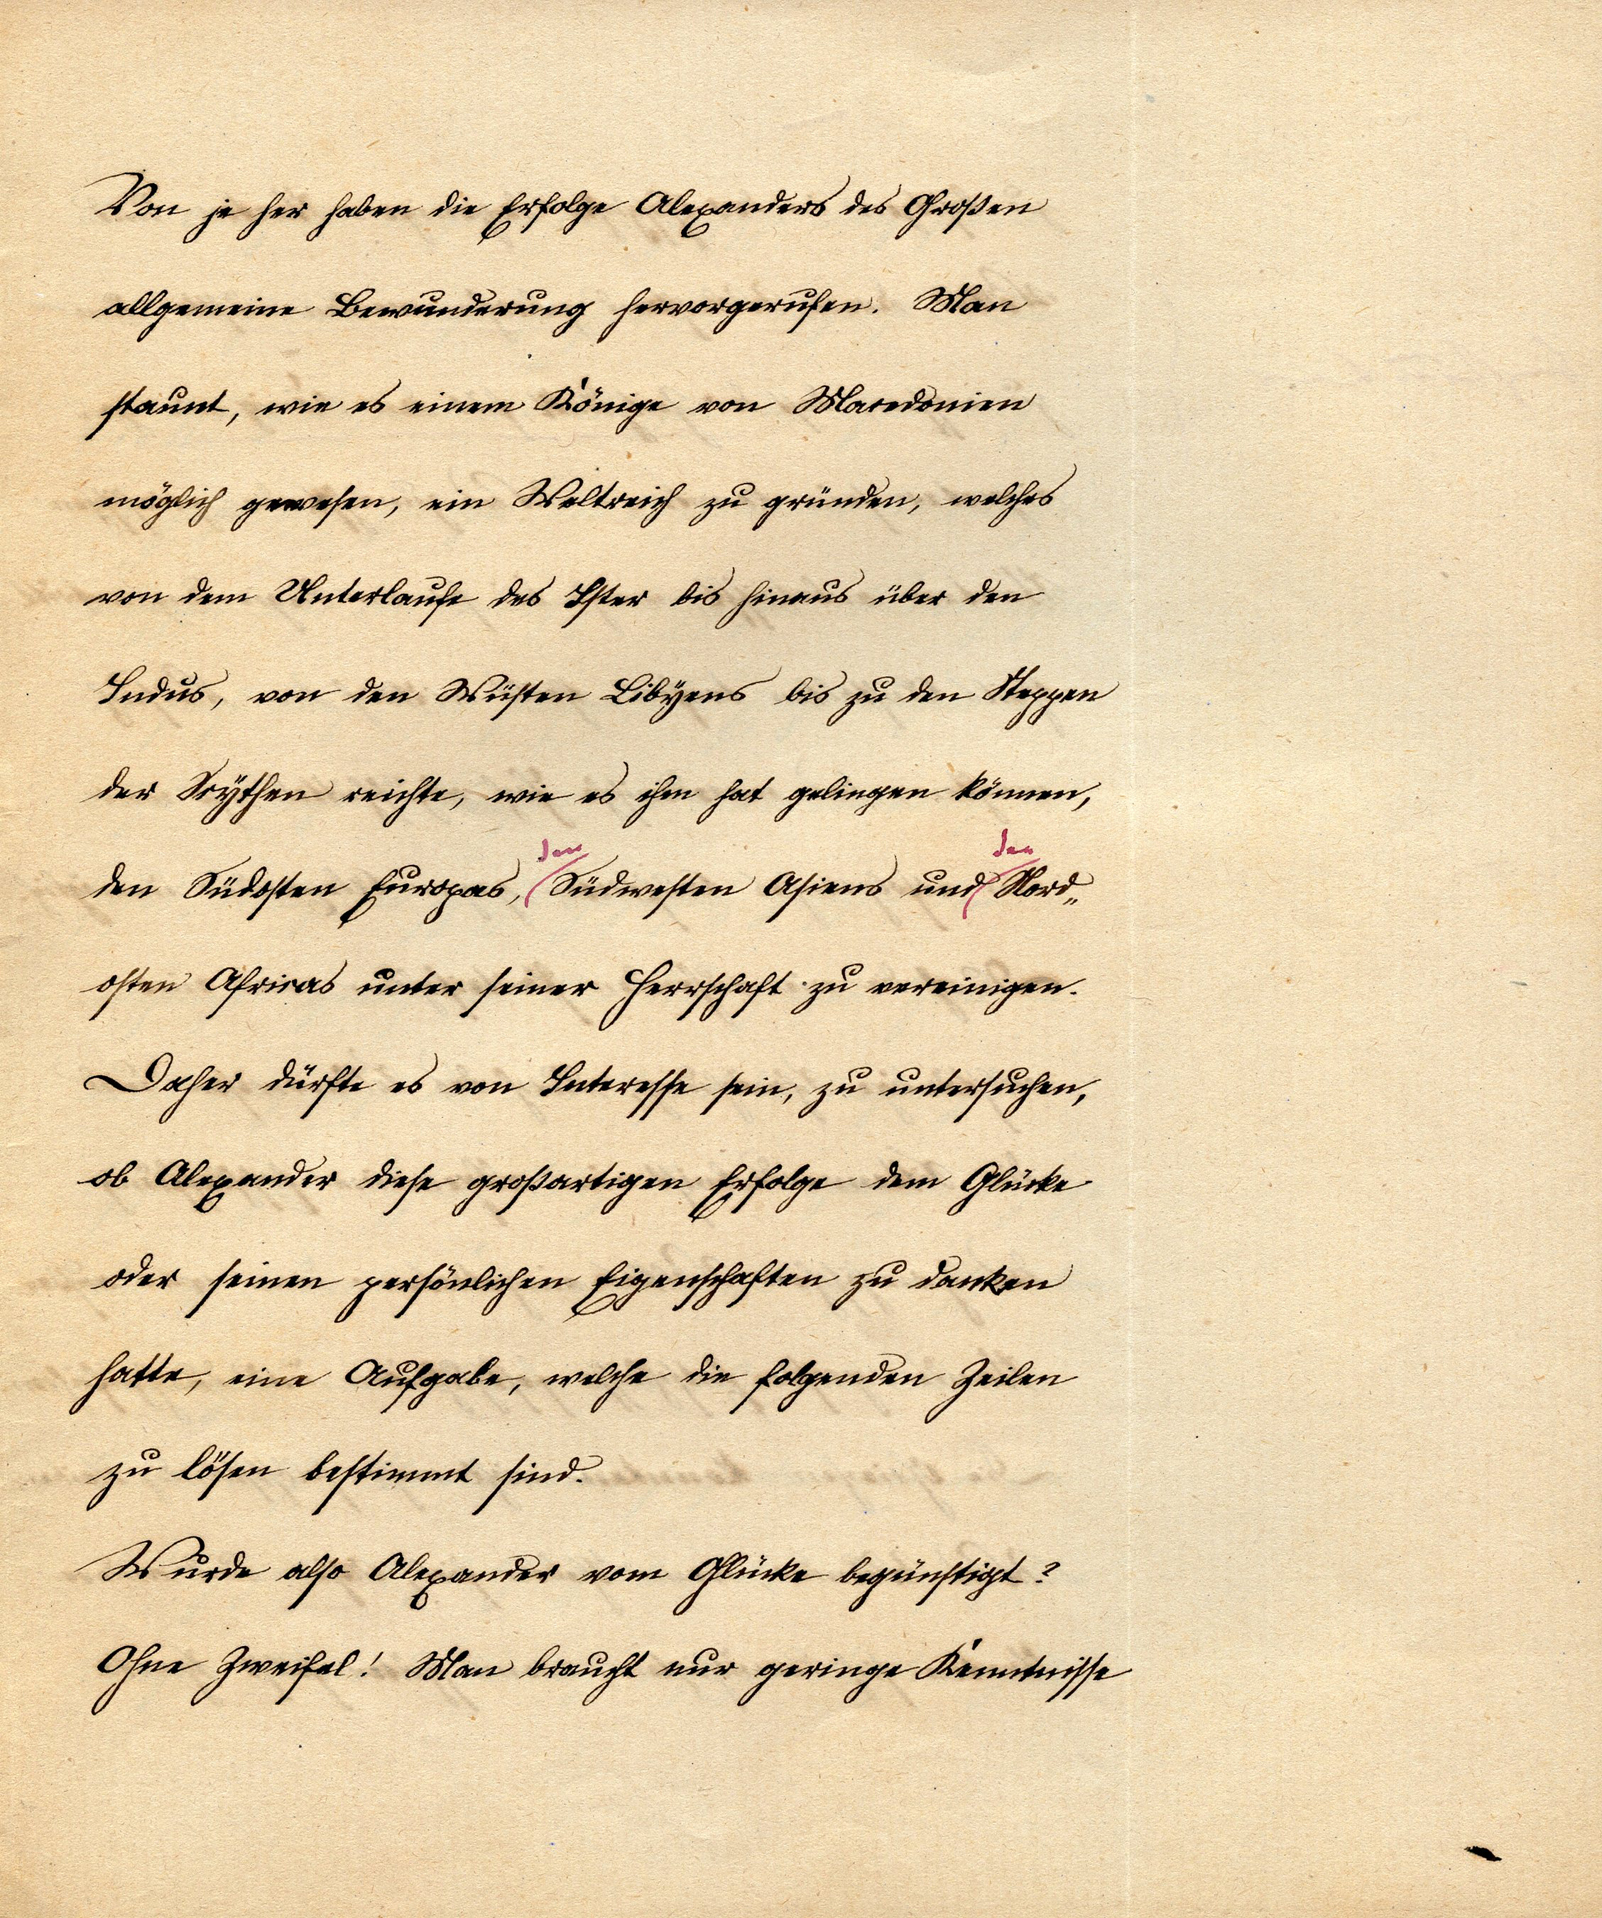 Von je her haben die Erfolge Alexanders des Großen
allgemeine Bewunderung hervorgerufen. Man
staunt, wie es einem Könige von Macedonien
möglich gewesen, ein Weltreich zu gründen, welches
von dem Unterlaufe des Ister bis hinaus über den
Indus, von den Wüsten Libÿens bis zu den Steppen
der Scÿthen reichte, wie es ihm hat gelingen können,
den den
den Südosten Europas, Südwesten Asiens und Nord„
osten Africas unter seiner Herrschaft zu vereinigen.
Daher dürfte es von Interesse sein, zu untersuchen,
ob Alexander diese großartigen Erfolge dem Glücke
oder seinen persönlichen Eigenschaften zu danken
hatte, eine Aufgabe, welche die folgenden Zeilen
zu lösen bestimmt sind.
Wurde also Alexander vom Glücke begünstigt?
Ohne Zweifel! Man braucht nur geringe Kenntnisse